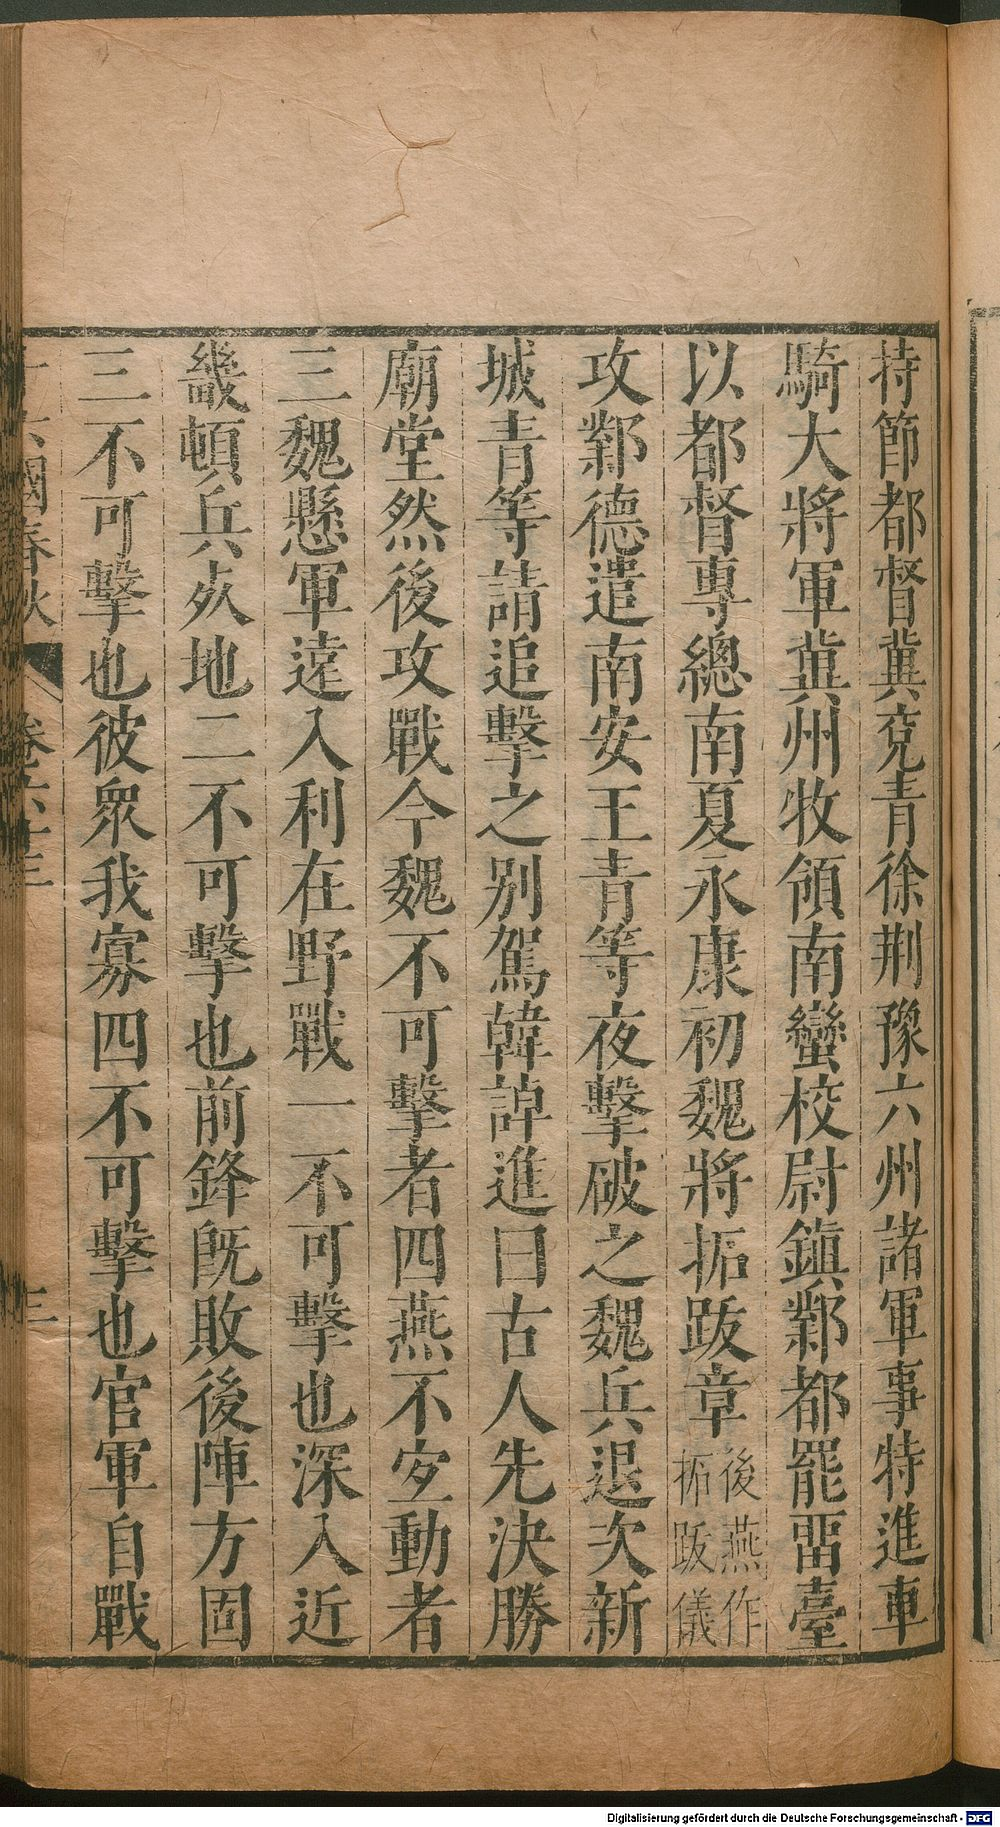 持節都督冀兗青徐荆豫六州諸軍事特進車
騎大將軍冀州牧領南蠻校尉鎮鄴都罷畱臺
以都督專總南夏永康初魏將拓跋章後燕作拓跋儀
攻鄴德遣南安王青等夜擊破之魏兵退次新
城青等請追擊之別駕韓𧨳進曰古人先決勝
廟堂然後攻戰今魏不可擊者四燕不宐動者
三魏懸軍遠入利在野戰一不可擊也深入近
畿頓兵死地二不可擊也前鋒旣敗後陣方固
三不可擊也彼衆我寡四不可擊也官軍自戰
十六國春秋 卷六十三 三
Digitalisierung gefördert durch die Deutsche Forschungsgemeinschaft - DFG